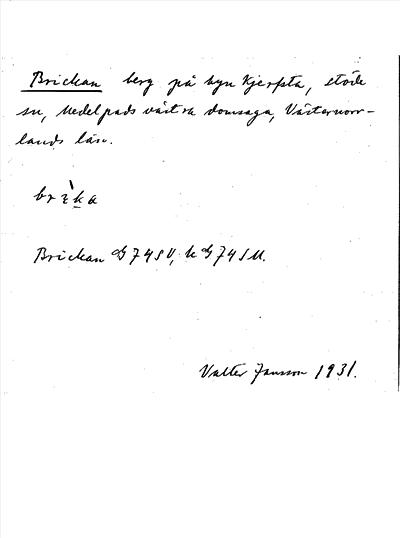 Brickan berg på byn Kjersta, Stöde
sn, Medelpads västra domsaga, Västernorr-
lands län.
brìka
Brickan G 74 SV, k G 74 SM.
Valter Jansson 1931.